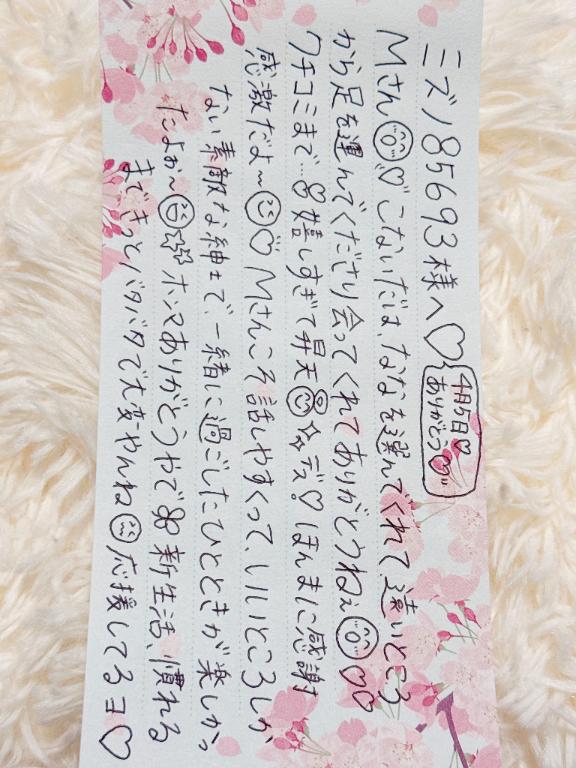 ミズノ85693様へ♡
4月5日♡
ありがとう♡
Mさん♡こないだはななを選んでくれて遠いところ
から足を運んでくださり会ってくれてありがとうねぇ♡♡
クチコミまで…嬉しすぎて昇天☆デス!♡ほんまに感謝
感激だよ〜♡Mさんこそ話しやすくって、いいところしか
ない素敵な紳士で、一緒に過ごしたひとときが楽しかっ
たよぉ〜☆☆ホンマありがとうやで新生活、慣れる
まできっとバタバタで大変やんね応援してるヨ♡